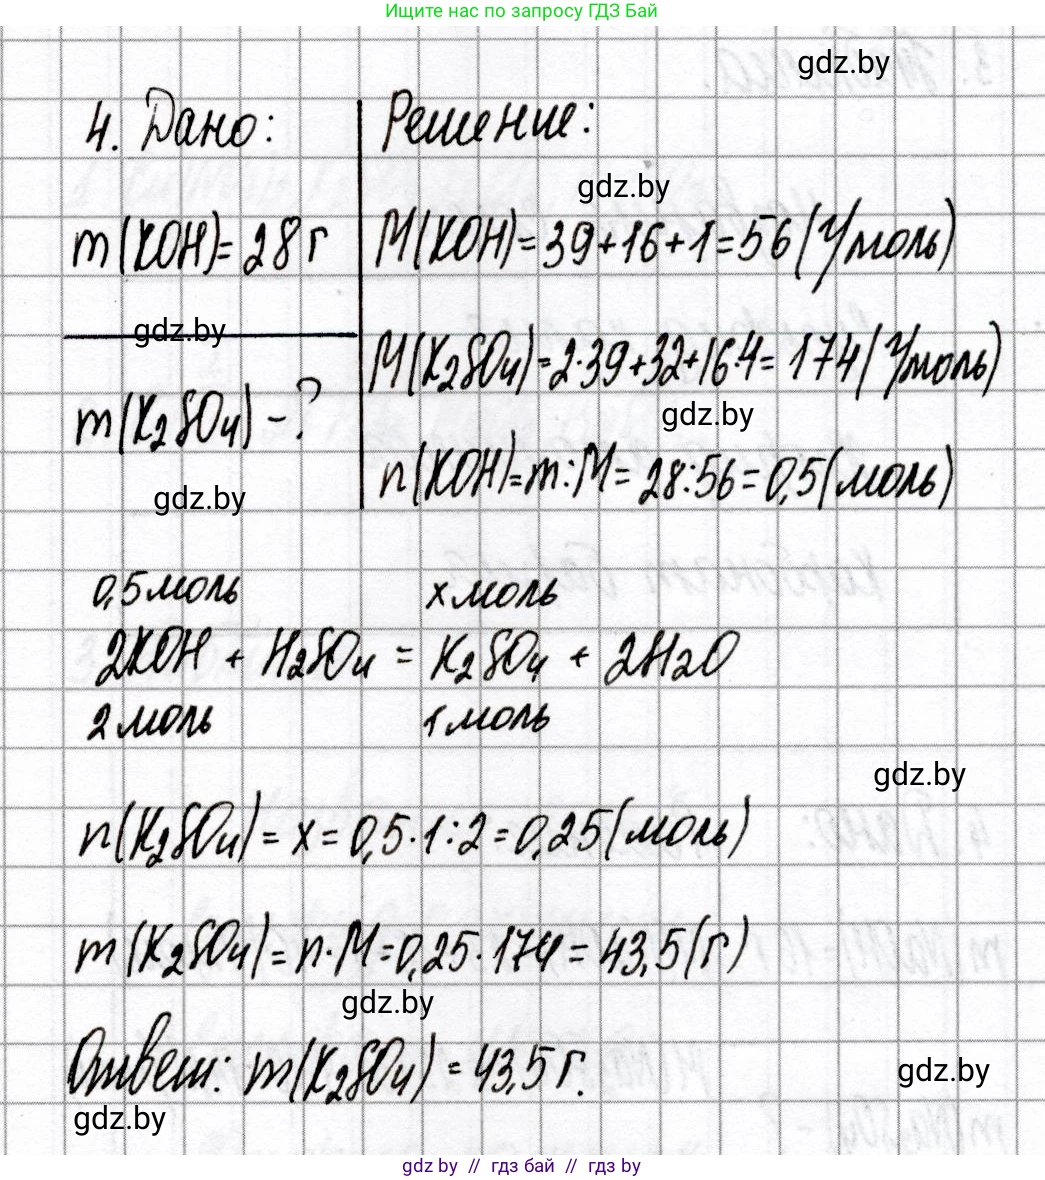 Ищите нас по запросу ГДЗ Бай
gdz.by
4. Дано:
Решение:
gdz.by
m(KOH)=28 г
M(KOH)=39+16+1=56 (г/моль)
gdz.by
M(K₂SO₄)=2·39+32+16·4=174 (г/моль)
m(K₂SO₄) - ?
gdz.by
n(KOH)=m:M=28:56=0,5(моль)
gdz.by
0,5 моль x моль
2KOH + H₂SO₄ = K₂SO₄ + 2H₂O
2 моль 1 моль
gdz.by
n(K₂SO₄)=x=0,5·1:2=0,25(моль)
m(K₂SO₄)=n·M=0,25·174=43,5(г)
gdz.by
Ответ: m(K₂SO₄)=43,5 г.
gdz.by
gdz.by
gdz by // гдз бай // гдз by